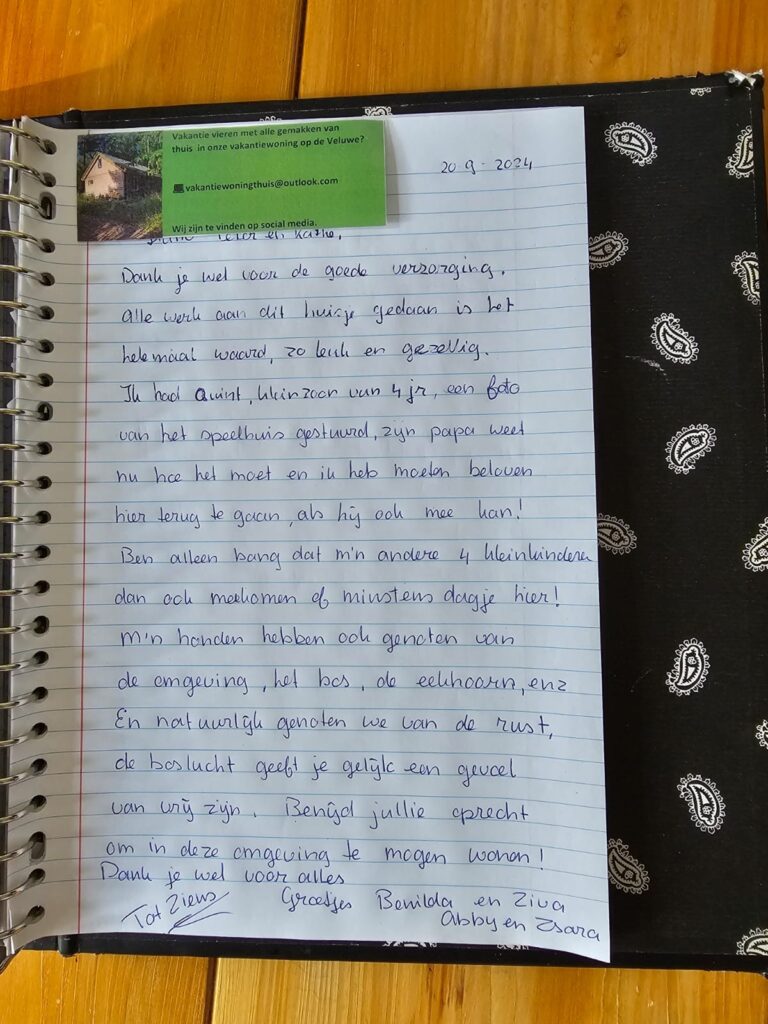 Vakantie vieren met alle gemakken van
thuis in onze vakantiewoning op de Veluwe?
vakantiewoningthuis@outlook.com
Wij zijn te vinden op social media.
20-9-2024
en
Dank je wel voor de goede verzorging.
alle werk aan dit huisje gedaan is het
helemaal waard, zo leuk en gezellig.
Ik had Quint, kleinzoon van 4 jr, een foto
van het speelhuis gestuurd, zijn papa weet
nu hoe het moet en ik heb moeten beloven
hier terug te gaan, als hij ook mee kan!
Ben alleen bang dat m'n andere 4 kleinkinderen
dan ook meekomen of minstens dagje hier!
M'n honden hebben ook genoten van
de omgeving, het bos, de eekhoorn, enz
En natuurlijk genoten we van de rust,
de boslucht geeft je gelijk een gevoel
van vrij zijn. Benijd jullie oprecht
om in deze omgeving te mogen wonen!
Dank je wel voor alles
Tot Ziens
Groetjes Benilda en Ziva
Abby en Zsara